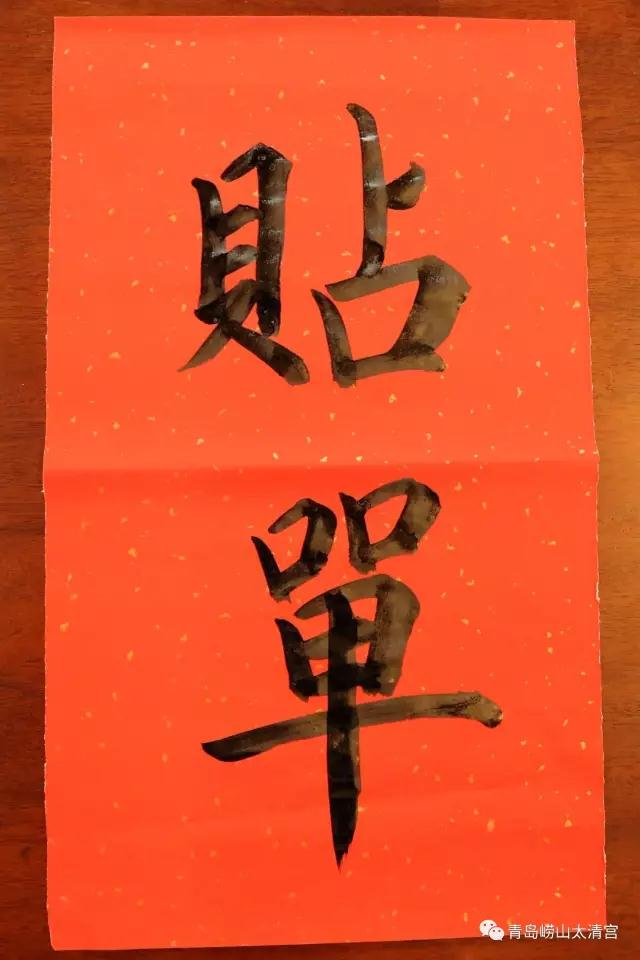 貼
單
青岛崂山太清宫